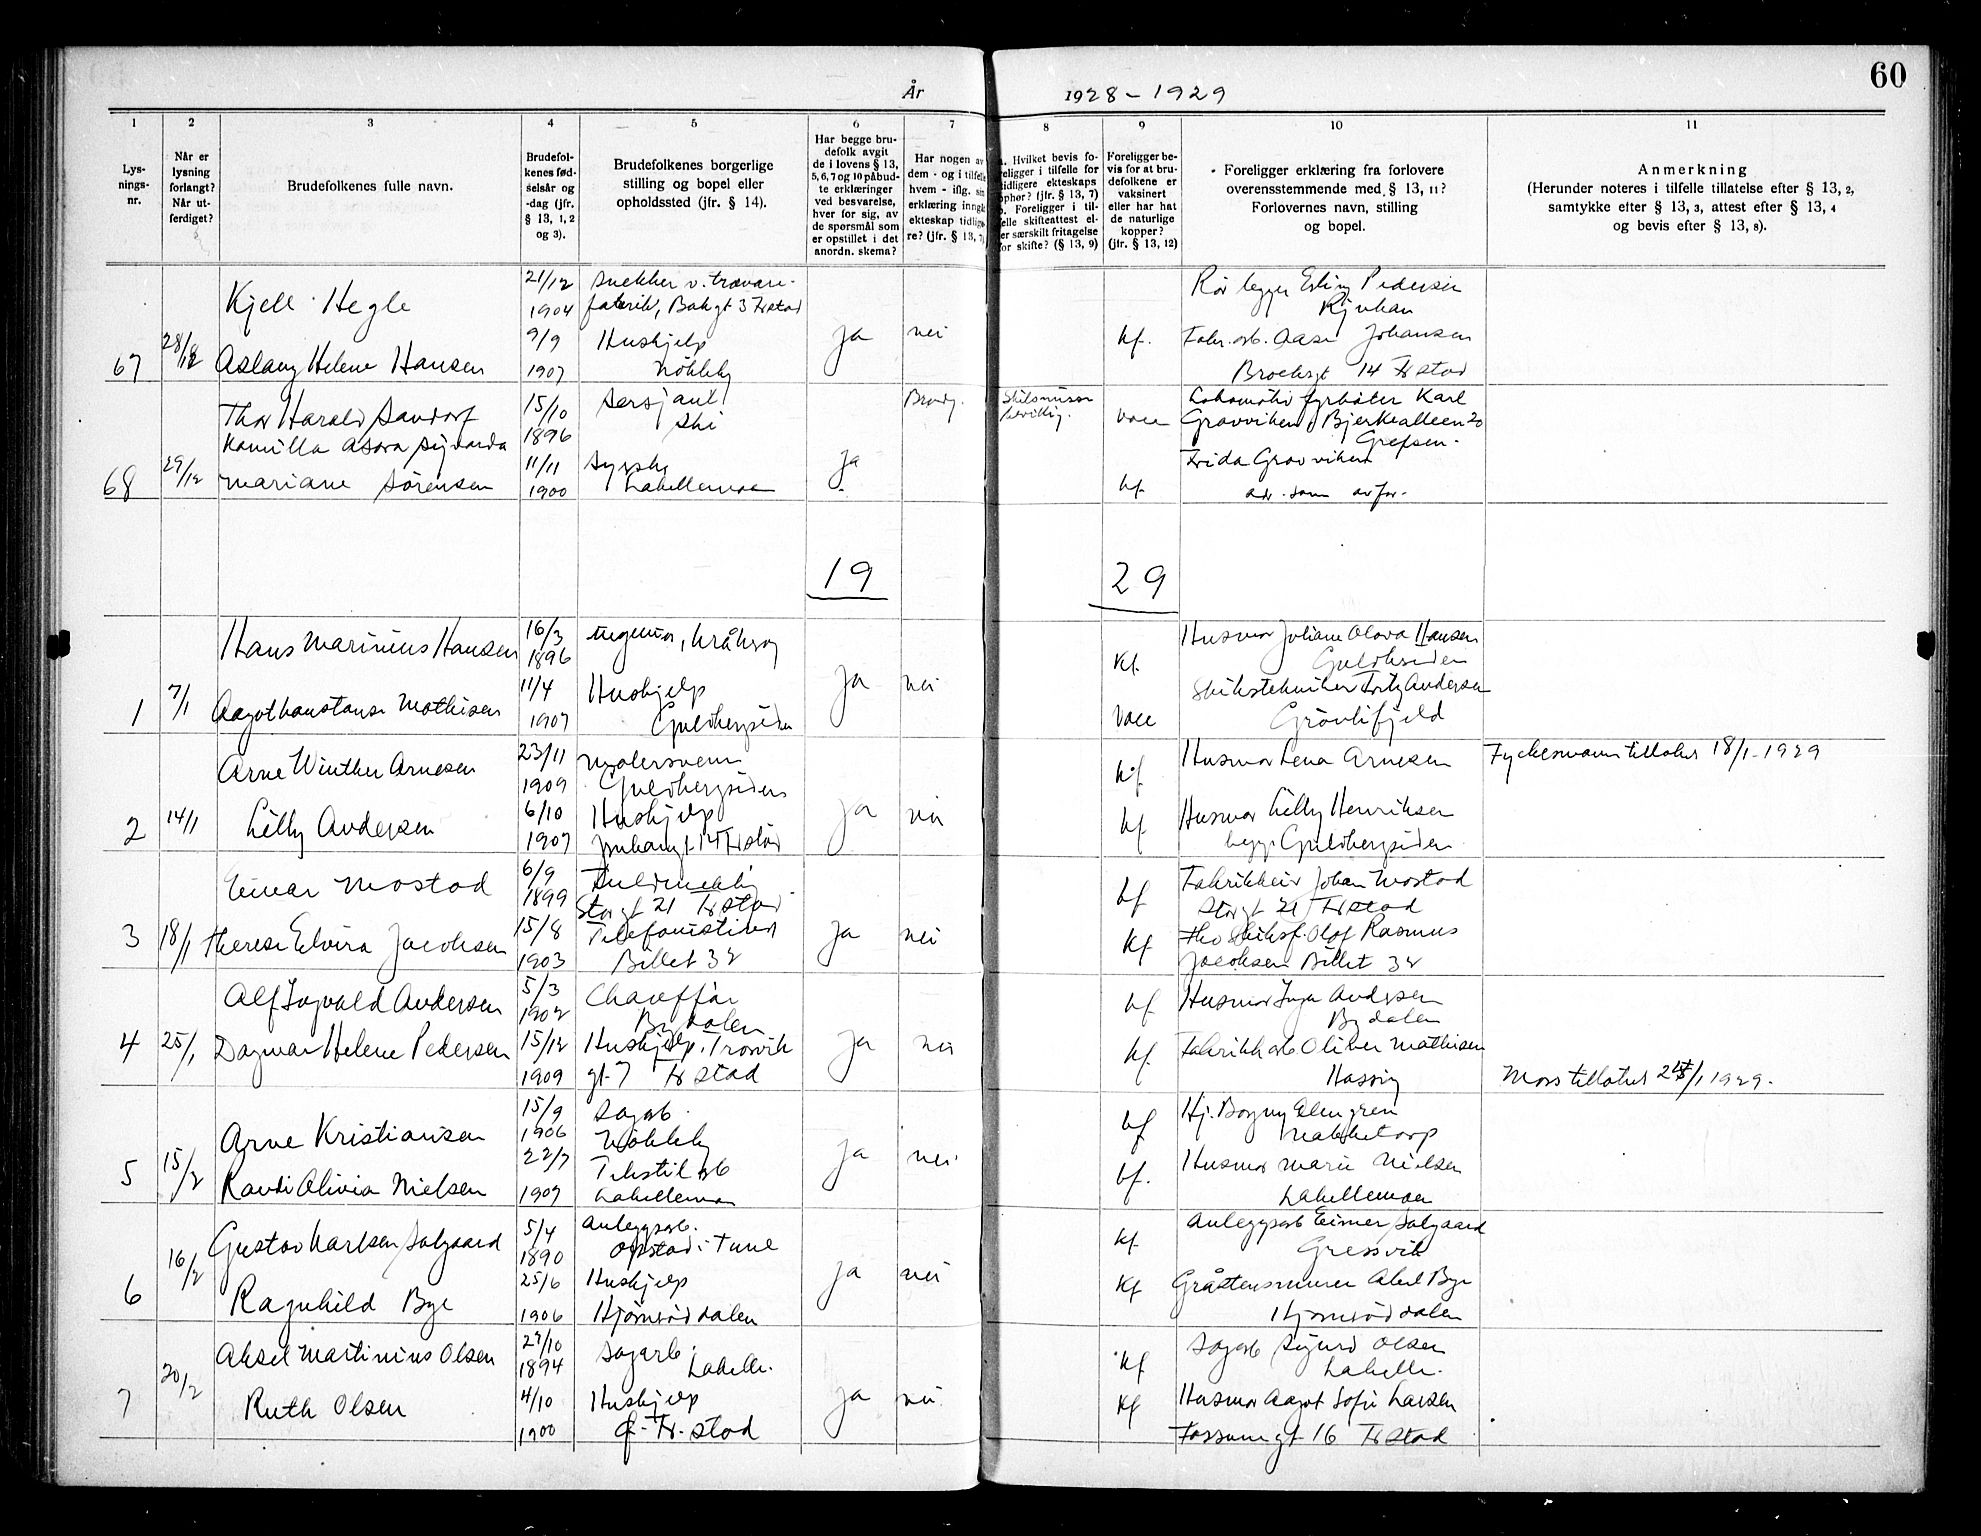 60
År 1928 - 1929
1 2 3 4 5 6 7 8 9 10 11
Lys-
nings-
nr.
Når er
lysning
forlangt?
Når ut-
ferdiget?
Brudefolkenes fulle navn.
Brudefol-
kenes fød-
selsår og
-dag (jfr.
§ 13, 1, 2
og 3).
Brudefolkenes borgerlige
stilling og bopel eller
opholdssted (jfr. § 14).
Har begge bru-
defolk avgit
de i lovens § 13,
5, 6, 7 og 10 påbud-
te erklæringer
ved besvarelse,
hver for sig, av
de spørsmål som
er opstillet i det
anordn. skema?
Har nogen av
dem - og i tilfelle
hvem - iflg. sin
erklæring inngått
ekteskap tidlige-
re? (jfr. § 13, 7)
a. Hvilket bevis fo-
religger i tilfelle for
tidligere ekteskaps
ophør? (jfr. § 13, 7)
b. Foreligger i til-
felle skifteattest el-
ler særskilt fritagelse
for skifte? (§ 13, 9)
Foreligger be-
vis for at bru-
defolkene er
vaksinert
eller har hat
de naturlige
kopper?
(jfr. § 13, 12)
Foreligger erklæring fra forlovere
overensstemmende med § 13, 11?
Forlovernes navn, stilling
og bopel.
Anmerkning
(Herunder noteres i tilfelle tillatelse efter § 13, 2,
samtykke efter § 13, 3, attest efter § 13, 4
og bevis efter § 13, 8).
67 28/12
Kjell Hegle
21/12
1904
Snekker v. trævare-
fabrik, Bakgt 3 Frstad
Aslaug Helene Hansen
9/9
1907
Hushjelp
Nøkleby
Ja nei kf.
Rørlegger Erling Pedersen
Rjukan
Fabr. arb. Aase Johansen
Brochsgt 14 Frstad
68 29/12
Thor Harald Sandorf
15/10
1896
Sersjant
Ski
Kamilla Asora Sigvarda
Mariane Sørensen
11/11
1900
Syerske
Labellemoen
Ja
Brudg.
Skilsmisse
bevillig.
vacc
kf.
Lokomotiv fyrbøter Karl
Gravviken, Bjerkealleen 20
Grefsen.
Frida Gravviken
adr. som ovfor.
19 29
1 7/1
Hans Marinius Hansen
16/3
1896
Ingeniør, Kråkerøy
Aagot Konstanse Mathisen
11/4
1907
Hushjelp
Guldbergsiden
Ja nei
Kf.
vacc
Husmor Juliane Olava Hansen
Guldbergsiden
Skibstekniker Fritz Andersen
Grønlifjeld
2 14/1
Arne Winther Arnesen
23/11
1909
Malersvenn
Guldbergsiden
Lilly Andersen
6/10
1907
Hushjelp
14 Frstad
Ja nei
kf
kf
Husmor Lena Arnesen
Husmor Lilly Henriksen
begge Guldbergsiden
Fylkesmanns tillatelse 18/1-1929
3 18/1
Einar Mostad
6/9
1899
Storgt 21 Frstad
Therese Elvira Jacobsen
15/8
1903
Telefonistinne
Billet 32
Ja nei
kf
kf
Fabrikkeier Johan Mostad
Storgt 21 Frstad
Fhv skibsf. Olaf Rasmus
Jacobsen Billet 32
4 25/1
Alf Ingvald Andersen
5/3
1902
Chauffør
Bydalen
Dagmar Helene Pedersen
15/12
1909
Hushjelp. Trosvik
gt. 7 Frstad
Ja nei
kf
kf.
Husmor Inga Andersen
Bydalen
Fabrikkarb Oliver Mathisen
Hassing
Mors tillatelse 25/1 1929.
5 15/2
Arne Kristiansen
15/9
1906
Sagarb.
Nøkleby
Randi Olivia Nielsen
22/7
1907
Tekstilarb
Labellemoen
Ja nei
kf
kf.
Hj. Borgny Elmgren
Nabbetorp
Husmor Marie Nielsen
Labellemoen
6 16/2
Gustav Karlsen Solgaard
5/4
1890
Anleggsarb.
Opstad i Tune
Ragnhild Bye
25/6
1906
Hushjelp
Hjørnerøddalen
Ja nei
kf
kf
Anleggsarb Einer Solgaard
Gressvik
Gråstensmurer Abel Bye
Hjørnerøddalen
7 20/2
Aksel Martinius Olsen
27/10
1894
Sagarb.
Labelle.
Ruth Olsen
4/10
1900
Hushjelp
G. Fr. stad
Ja nei
kf
kf
Sagarb Sigurd Olsen
Labelle.
Husmor Aagot Sofie Larsen
Fossumgt 16 Frstad